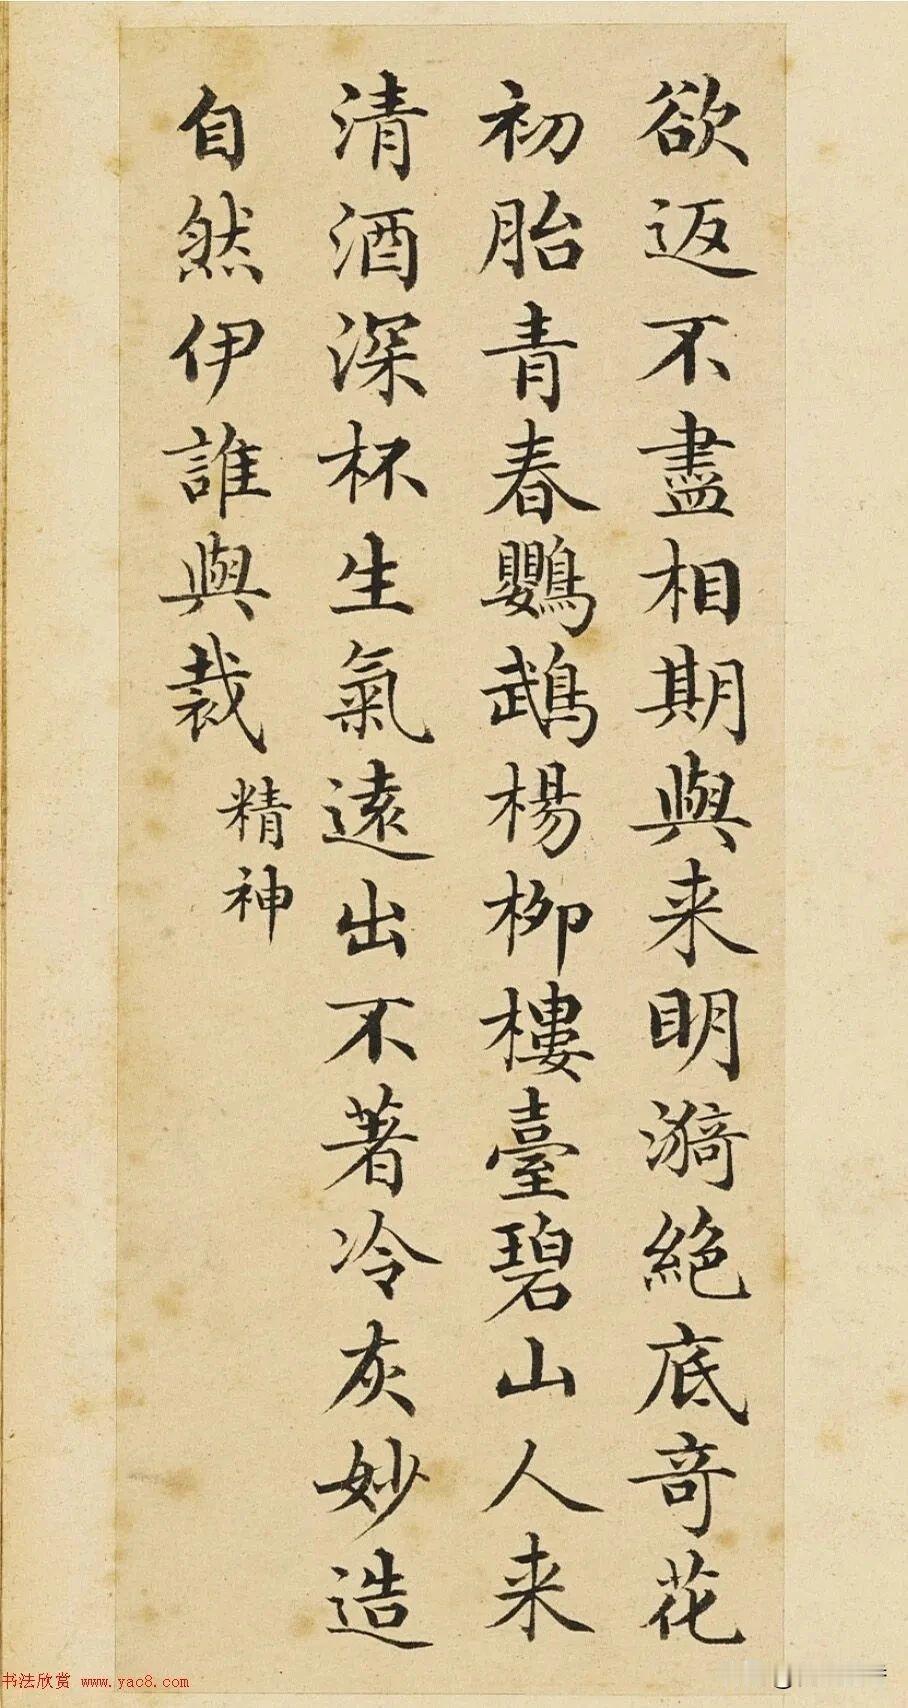 欲返不盡相期與来明漪絶底竒花
初胎青春鸚鵡楊栁樓臺碧山人来
清酒深杯生氣遠出不著冷灰妙造
自然伊誰與裁
精神
书法欣赏 www.yac8.com